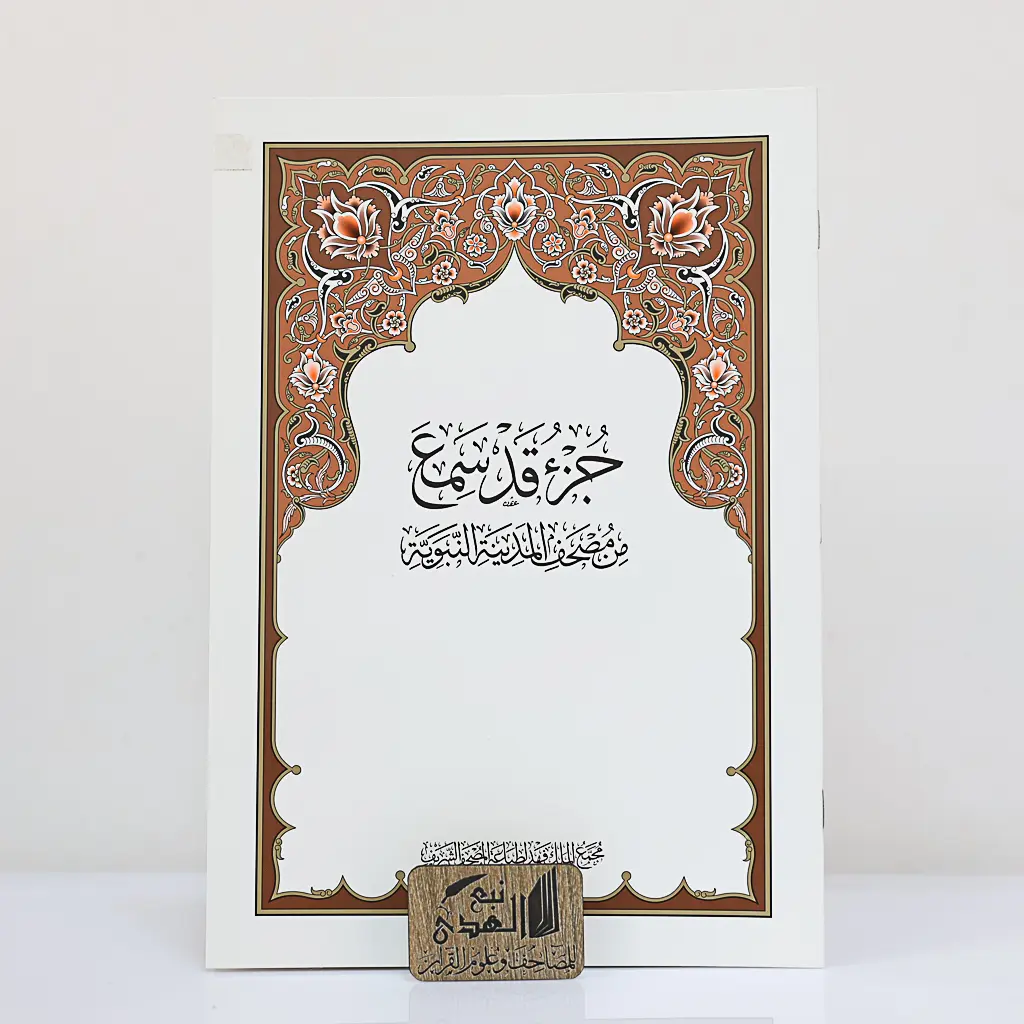 جُزْءُ قَدْ سَمِعَ
مِن مُصْحَفِ المَدِينَةِ النَّبَوِيَّةِ
مُجَمَّع المَلِك فَهْد لِطِبَاعَةِ المُصْحَفِ الشَّرِيفِ
نبع
الهدى
للمصاحف وعلوم القرآن